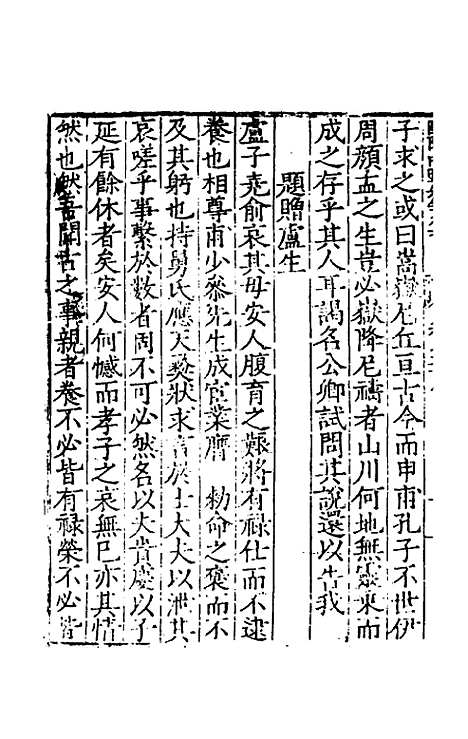 子求之或曰嵩嶽尼丘亘古今而申甫孔子不世伊
周顏孟之生豈必嶽降尼禱者山川何地無靈來而
成之存乎其人耳謁名公卿試問其說還以告我
題贈盧生
盧子堯俞哀其母安人腹育之艱將有祿仕而不逮
養也相尊甫少參先生成宦業膺 勑命之褒而不
及其躬也持舅氏應天狀求言於士大夫以泄其
哀嗟乎事繫於數者固不可必然名以夫貴慶以子
延有餘休者矣安人何憾而孝子之哀無已亦其情
然也然吾聞古之事親者養不必皆有祿榮不必皆